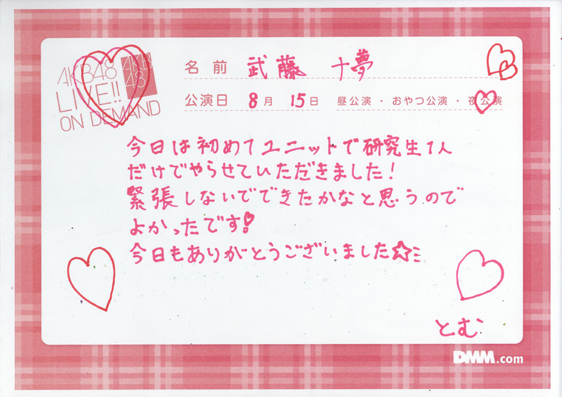 AKB48
LIVE!!
ON DEMAND
名前 武藤 十夢
公演日 8月 15日 昼公演・おやつ公演・夜公演
今日は初めてユニットで研究生1人
だけでやらせていただきました!
緊張しないでできたかなと思うので
よかったです!
今日もありがとうございました☆ミ
とむ
DMM.com